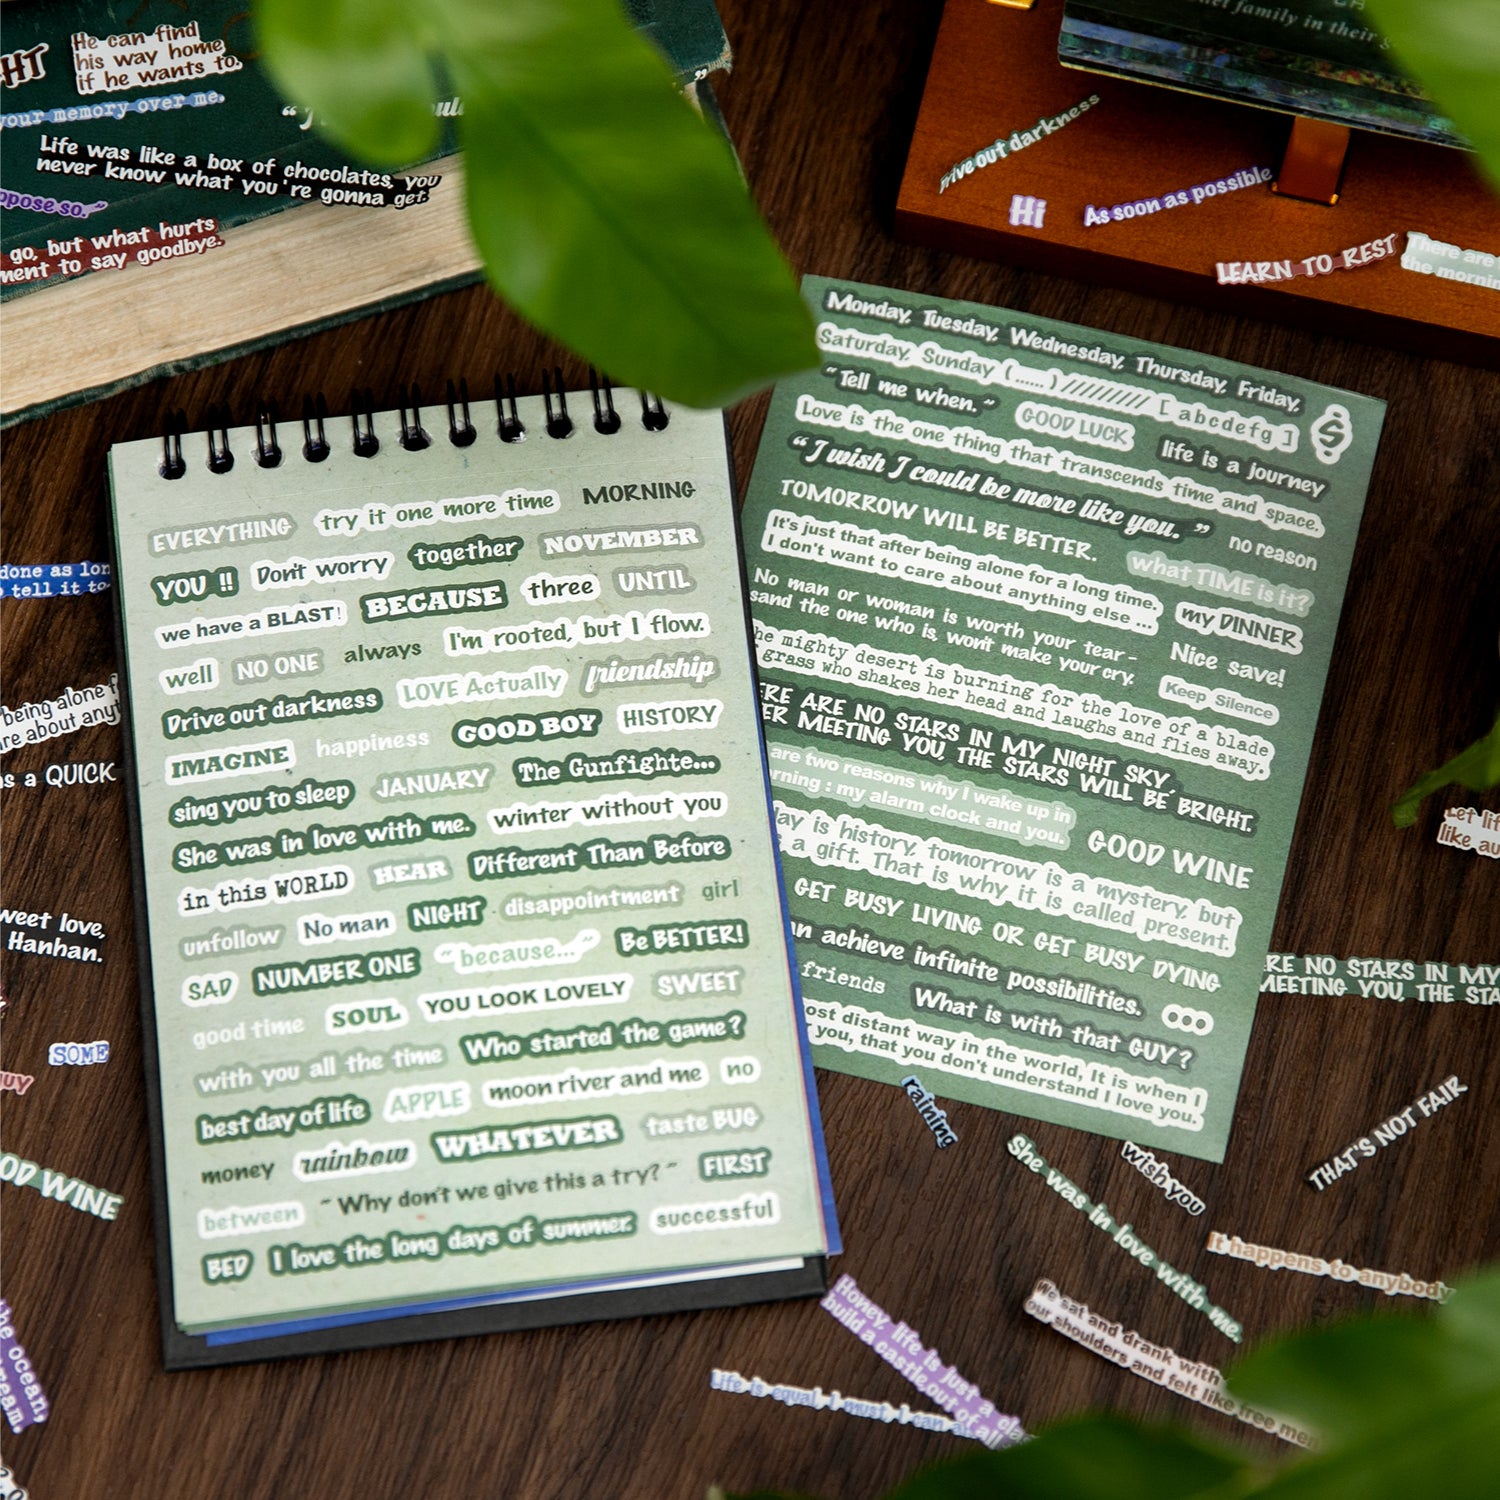 He can find
his way home
if he wants to.
your memory over me.
Life was like a box of chocolates, you
never know what you're gonna get.
go, but what hurts
to say goodbye.
family in their
out darkness
Hi
As soon as possible
LEARN TO REST
There are
the
done as
tell it to
being alone
about
a QUICK
love,
Hanhan.
SOME
WINE
the ocean,
EVERYTHING try it one more time MORNING
YOU !! Don't worry together NOVEMBER
we have a BLAST! BECAUSE three UNTIL
well NO ONE always I'm rooted, but I flow.
Drive out darkness LOVE Actually friendship
IMAGINE happiness GOOD BOY HISTORY
sing you to sleep JANUARY The Gunfighte...
She was in love with me. winter without you
in this WORLD HEAR Different Than Before
unfollow No man NIGHT disappointment girl
SAD NUMBER ONE ~because...~ Be BETTER!
good time SOUL YOU LOOK LOVELY SWEET
with you all the time Who started the game?
best day of life APPLE moon river and me no
money rainbow WHATEVER taste BUG
between ~Why don't we give this a try?~ FIRST
BED I love the long days of summer. successful
Monday, Tuesday, Wednesday, Thursday, Friday,
Saturday, Sunday (......) ///////// [abcdefg] $
~Tell me when.~ GOOD LUCK life is a journey
Love is the one thing that transcends time and space.
“I wish I could be more like you.”
TOMORROW WILL BE BETTER. no reason
It's just that after being alone for a long time.
I don't want to care about anything else ...
what TIME is it?
my DINNER
No man or woman is worth your tear-
sand the one who is, won't make your cry.
Nice save!
Keep Silence
mighty desert is burning for the love of a blade
grass who shakes her head and laughs and flies away.
ARE NO STARS IN MY NIGHT SKY,
MEETING YOU, THE STARS WILL BE BRIGHT.
are two reasons why I wake up in
: my alarm clock and you.
GOOD WINE
is history, tomorrow is a mystery, but
a gift. That is why it is called present.
GET BUSY LIVING OR GET BUSY DYING
achieve infinite possibilities.
friends What is with that GUY?
distant way in the world, It is when I
you, that you don't understand I love you.
NO STARS IN MY
MEETING YOU, THE
raining
She was in love with me.
wish you
THAT'S NOT FAIR
It happens to anybody
We sat and drank with
our shoulders and felt like free
Honey, life is just a
build a castle out of
Life is equal, I must, I can